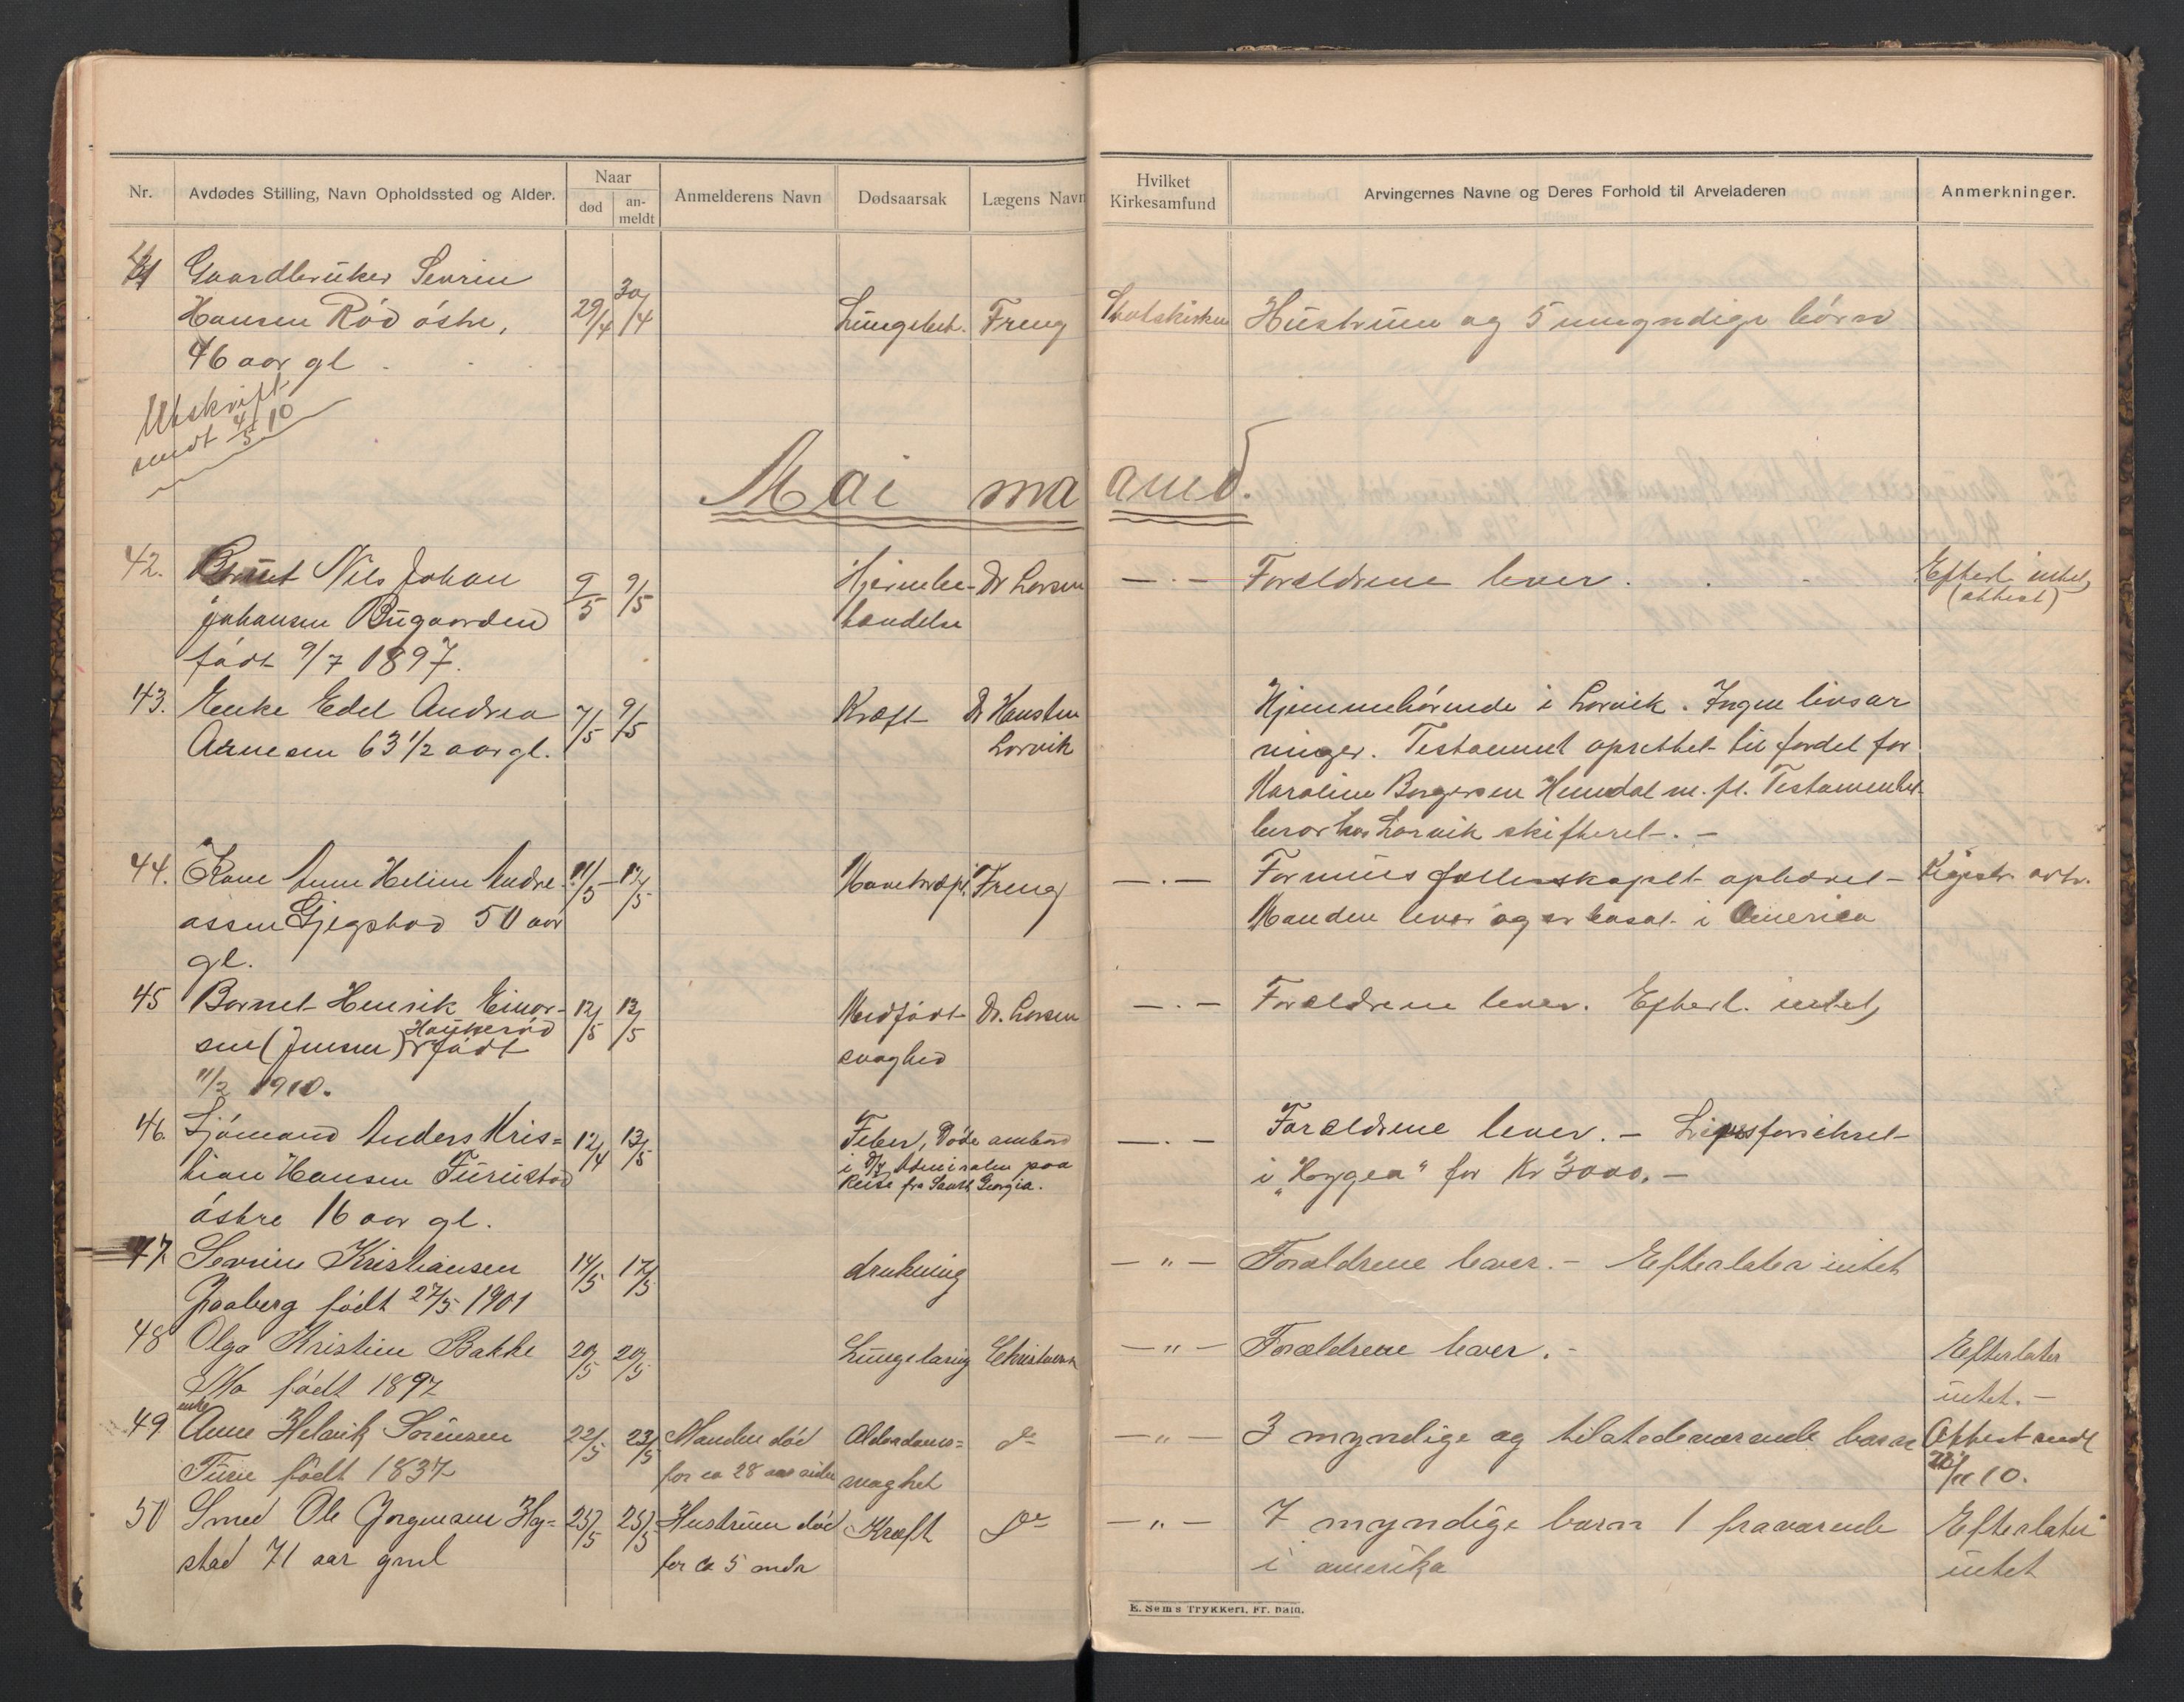 Nr.
Avdødes Stilling, Navn Opholdssted og Alder.
Naar
død
an-
meldt
Anmelderens Navn
Dødsaarsak
Lægens Navn
Hvilket
Kirkesamfund
Arvingernes Navne og Deres Forhold til Arveladeren
Anmerkninger.
41 Gaardbruker Sevrin
Hansen Rød östre, 29/4 30/4 Lungebet. Freng Statskirken Hustruen og 5 umyndige börn
46 aar gl.
Utskrift
sendt 4/5 10
Mai maaned.
42. Barnet Nils Johan 9/5 9/5 Hjernebe- Dr Larsen — . — Forældrene lever. Efterl. intet,
Johansen Bugaarden tændelse (attest)
födt 9/7 1897.
43. Enke Edel Andrea 7/5 9/5 Kræft Dr Hansten Hjemmehörende i Larvik. Ingen livsar
Arnesen 63 1/2 aar gl. Larvik vinger. Testament oprettet til fordel for
Karoline Borgersen Hemdal m. fl. Testamentet
beror hos Larvik skifteret. —
44. Kone Anne Heline Andre- 11/5 12/5 Mavekræft Freng — . — Formuesfællesskapet ophævet — Registr. avh.
assen Gjegstad 50 aar Manden lever og er bosat i America
gl.
45 Barnet Henrik Einar- 12/5 13/5 Medfödt Dr. Larsen — . — Forældrene lever. Efterl. intet,
sen (Jensen) Haukeröd födt svaghed
11/2 1910.
46. Sjömand Anders Kris= 12/4 13/5 Feber, Döde ombord — . — Forældrene lever. — Livsforsikret
tian Hansen Furustad i D/S Admiralen paa i "Hygea" for Kr 3000. —
östre 16 aar gl. Reise fra South Georgia.
47. Sevrin Kristiansen 14/5 17/5 drukning — " — Forældrene lever. — Efterlater intet
Graaberg født 27/5 1901
48 Olga Kristine Bakke 20/5 20/5 Lungetæring Christensen — " — Forældrene lever. — Efterlater
Mo født 1897 intet. —
49 enke Anne Helvik Sörensen 22/5 23/5 Manden död Alderdoms= do — " — 3 myndige og tilstedeværende barn Attest sendt
Furu født 1837 for ca 28 aar siden svaghet /11 10.
50 Smed Ole Jørgensen Hag= 23/5 25/5 Hustruen død Kræft do — " — 7 myndige barn 1 fraværende Efterlater
stad 71 aar gml for ca 5 mdr i amerika intet
E. Sem's Trykkeri, Fr. hald.